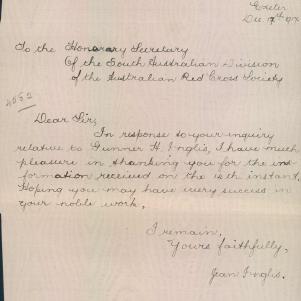 Exeter
Dec. 17th 1917
To the Honorary Secretary
Of the South Australian Division
of the Australian Red Cross Society
4052
Dear Sir,
In response to your inquiry
relative to Gunner H. Inglis, I have much
pleasure in thanking you for the in-
formation received on the 15th instant.
Hoping you may have every success in
your noble work,
I remain,
Yours faithfully,
Jean Inglis.